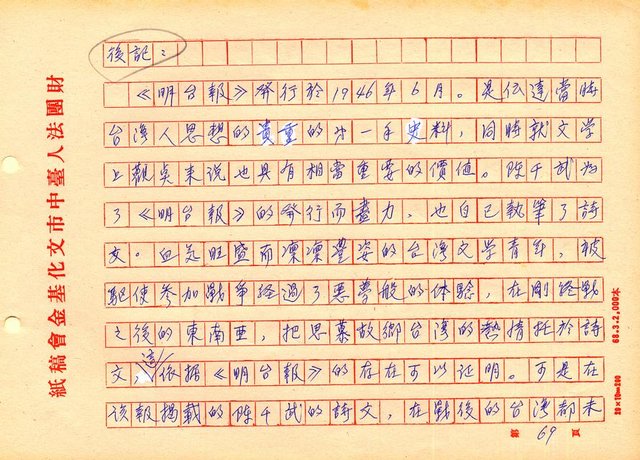 後記：
《明台報》發行於1946年6月。是伝達當時
台湾人思想的貴重的第一手史料，同時就文学
上觀点来说也具有相當重要的價值。陳千武為
了《明台報》的發行而盡力，也自己執筆了詩
文。血気旺盛而凜凜豐姿的台湾文学青年，被
駆使参加戰爭経過了悪夢般的体驗，在剛終戰
之後的東南亜，把思慕故鄉台湾的熱情托於詩
文，這依据《明台報》的存在可以证明。可是在
该報揭載的陳千武的詩文，在戰後的台湾都未
第 69 頁
財團法人臺中市文化基金會稿紙
68.3.2,000本
20×10=200